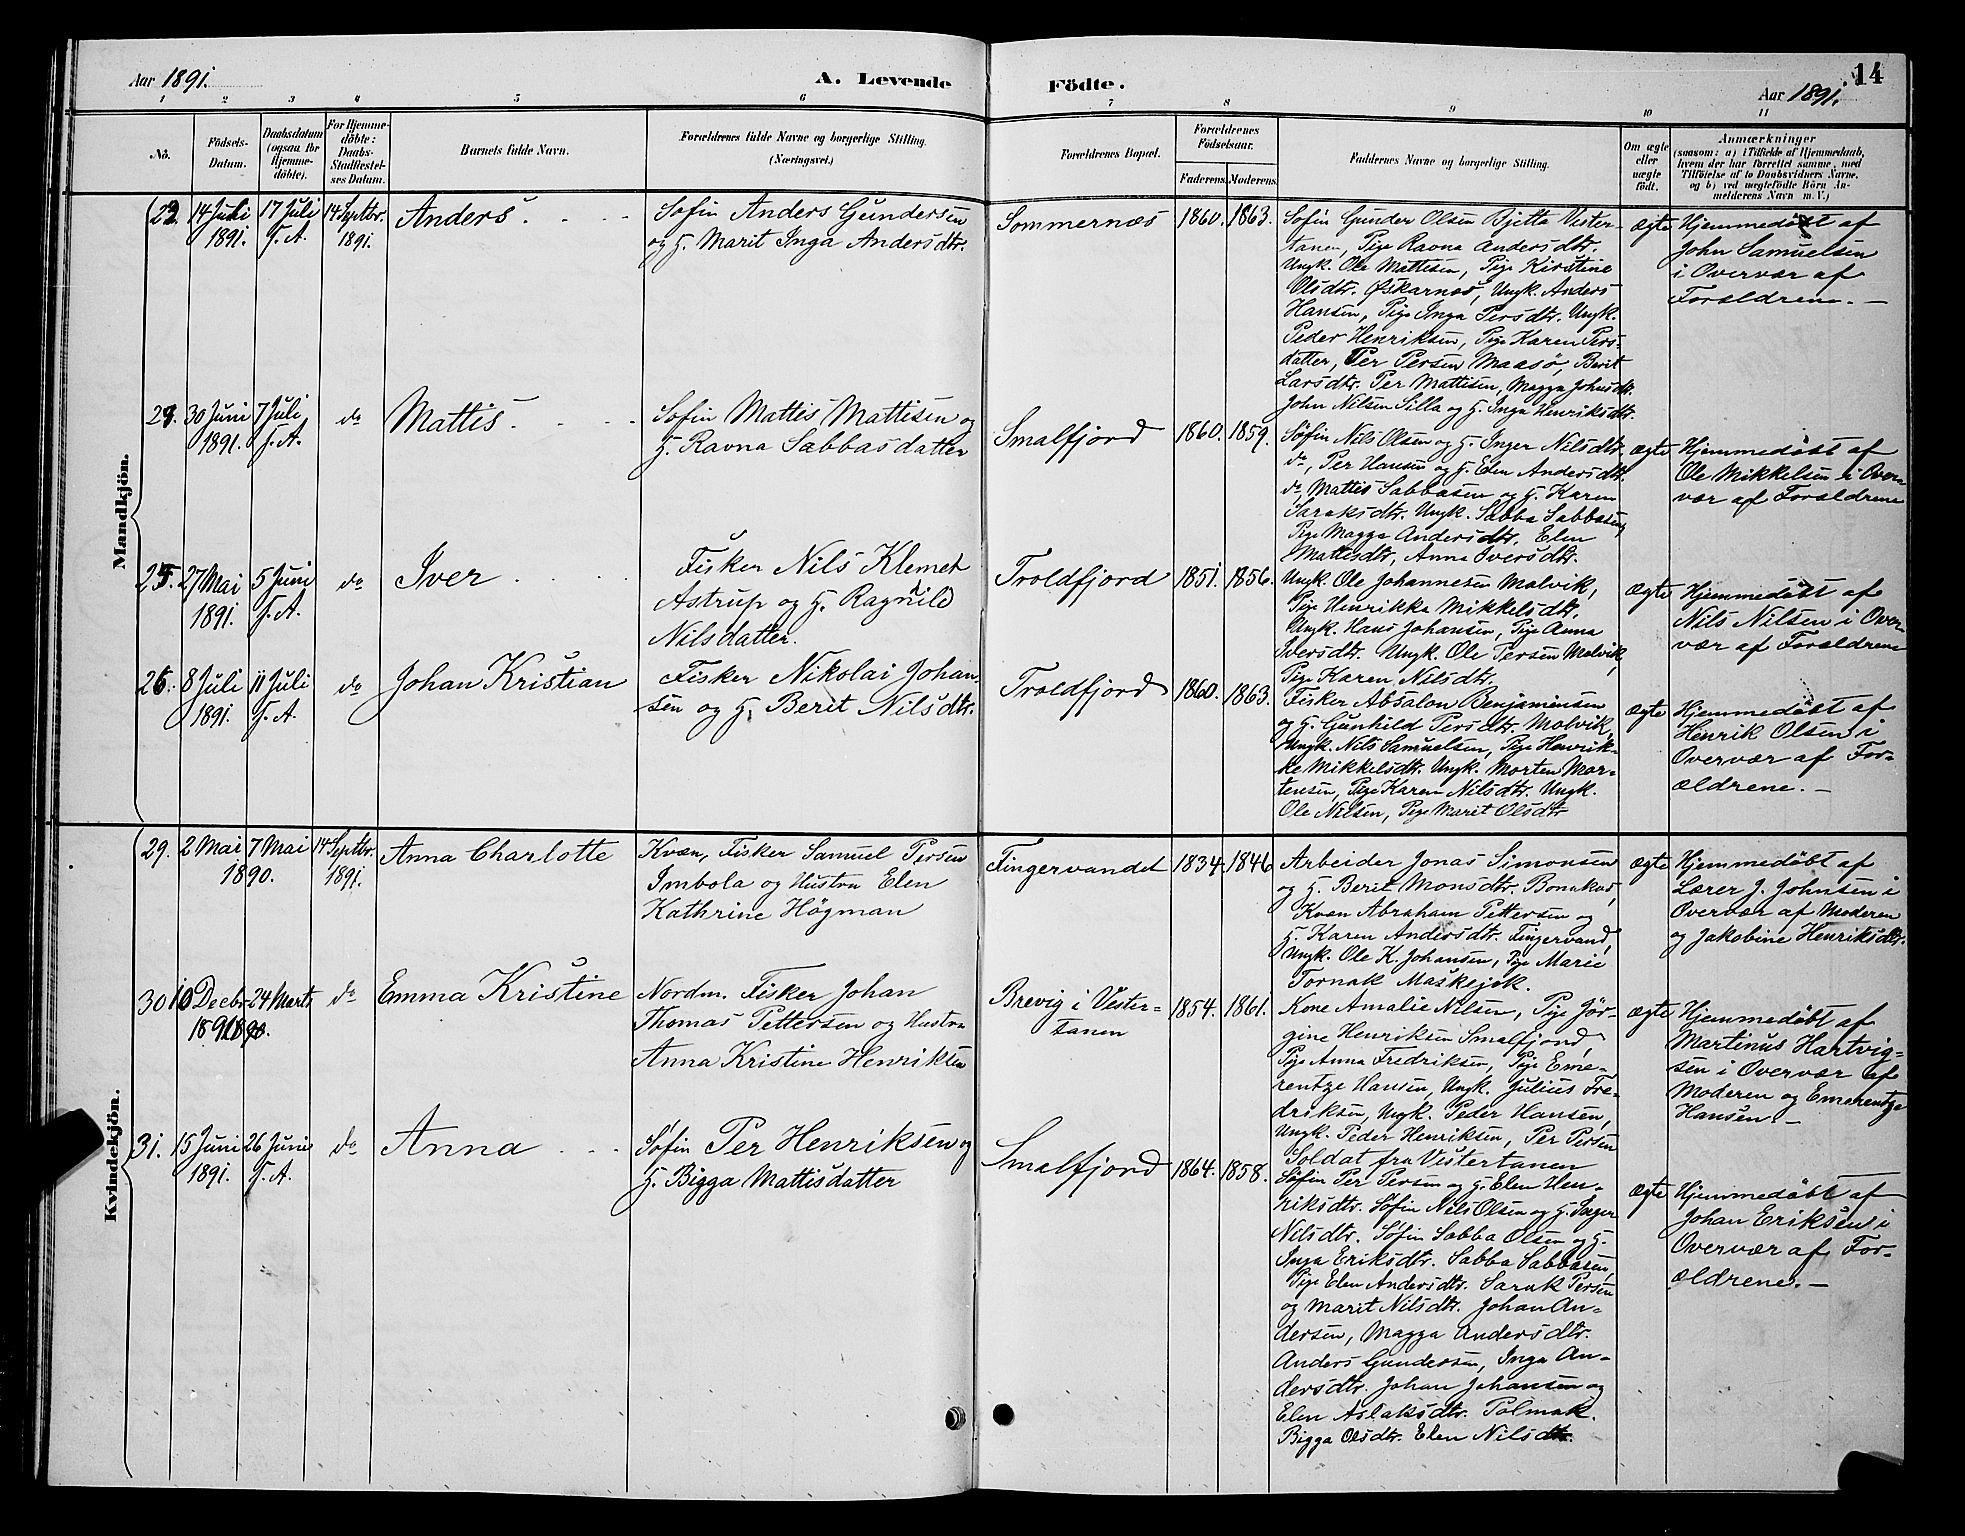 Aar 1891.
A. Levende
Födte.
14
Aar 1891.
1 2 3 4 5 6 7 8 9 10 11
Nô.
Födsels-
Datum.
Daabsdatum
(ogsaa for
Hjemme-
döbte).
For Hjemme-
döbte:
Daabs-
Stadfæstel-
ses Datum.
Barnets fulde Navn.
Forældrenes fulde Navne og borgerlige Stilling.
(Næringsvei.)
Forældrenes Bopæl.
Forældrenes
Födselsaar.
Faderens. Moderens.
Faddernes Navne og borgerlige Stilling.
Om ægte
eller
uægte
født.
Anmærkninger
(saasom: a) i Tilfælde af Hjemmedaab,
hvem der har forrettet samme, med
Tilföielse af to Daabsvidners Navne,
og b) ved uægtefödte Börn An-
melderens Navn m. V.)
Mandkjön.
23.
14 Juli
1891.
17 Juli
s. A.
14 Septbr.
1891.
Anders.
Søfin Anders Gundersen
og H. Marit Inga Andersdtr.
Sommernæs
1860.
1863.
Søfin Gunder Olsen Bjetta Vester-
tanen, Pige Ravna Andersdtr.
Ungk. Ole Mattisen, Pige Kirstine
Olsdtr. Øskarnæs, Ungk. Anders
Hansen, Pige Inga Persdtr. Ungk.
Peder Henriksen, Pige Karen Pers-
datter, Per Persen Maasø, Berit
Larsdtr. Per Mattisen, Magga Johnsdtr.
John Nilsen Silla og H. Inga Henriksdtr.
ægte
Hjemmedøbt af
John Samuelsen
i Overvær af
Forældrene. —
24.
30 Juni
1891.
7 Juli,
s. A.
do
Mattis.
Søfin Mattis Mattisen og
H. Ravna Sabbasdatter
Smalfjord
1860.
1859.
Søfin Nils Olsen og H. Inger Nilsdtr.
do, Per Hansen og H. Elen Andersdtr.
do, Mattis Sabbasen og H. Karen
Saraksdtr. Ungk. Sabba Sabbasen,
Pige Magga Andersdtr. Elen
Mattisdtr, Anna Iversdtr.
ægte
Hjemmedøbt af
Ole Mikkelsen i Over-
vær af Forældrene
25.
27 Mai
1891.
5 Juni
s. A.
do
Iver
Fisker Nils Klemet
Astrup og H. Ragnild
Nilsdatter.
Troldfjord
1851.
1856.
Ungk. Ole Johannesen Molvik,
Pige Henrikka Mikkelsdtr.
Ungk. Hans Johansen, Pige Anna
Iversdtr. Ungk. Ole Persen Molvik,
Pige Karen Nilsdtr.
ægte
Hjemmedøbt af
Nils Nilsen i Over-
vær af Forældrene
26.
8 Juli
1891.
11 Juli
s. A.
do
Johan Kristian
Fisker Nikolai Johan-
sen og H. Berit Nilsdtr.
Troldfjord
1860.
1863.
Fisker Absalon Benjaminsen
og H. Gunhild Persdtr. Molvik,
Ungk. Nils Samuelsen, Pige Henrik-
ke Mikkelsdtr. Ungk. Morten Mor-
tensen, Pige Karen Nilsdtr. Ungk.
Ole Nilsen, Pige Marit Olsdtr
ægte
Hjemmedøbt af
Henrik Olsen i
Overvær af For-
ældrene. —
Kvindekjön.
29.
2 Mai
7 Mai
1890.
14 Septbr.
1891.
Anna Charlotte
Kvæn, Fisker Samuel Persen
Imbola og Hustru Elen
Kathrine Högman
Fingervandet
1834.
1846
Arbeider Jonas Simonsen
og H. Berit Monsdtr. Bonakas,
Kvæn Abraham Pettersen og
H. Karen Andersdtr. Fingervand,
Ungk. Ole K. Johansen, Pige Marie
Tornak Maskejok.
ægte
Hjemmedøbt af
Lærer J. Johnsen i
Overvær af Moderen
og Jakobine Henriksdtr.
30
10 Decbr.
24 Marts
do
Emma Kristine
Nordm. Fisker Johan
Thomas Pettersen og Hustru
Anna Kristine Henriksen
Brevig i Vester-
tanen
1854.
1861.
Kone Amalie Nilsen, Pige Jör-
gine Henriksen Smalfjord,
Pige Anna Fredriksen, Pige Eme-
rentze Hansen, Ungk. Julius Fre-
driksen, Ungk. Peder Hansen,
Ungk. Peder Henriksen, Per Persen
Soldat fra Vestertanen
ægte
Hjemmedøbt af
Martinus Hartvig-
sen i Overvær af
Moderen og Emerentze
Hansen. —
31.
15 Juni
1891.
26 Juni
s. A.
do
Anna
Søfin Per Henriksen og
H. Bigga Mattisdatter
Smalfjord
1864.
1858.
Søfin Per Persen og H. Elen Hen-
riksdtr. Søfin Nils Olsen og H. Inger
Nilsdtr. Søfin Sabba Olsen og H.
Inga Eriksdtr. Sabba Sabbasen,
Pige Elen Andersdtr. Sarak Persen
og Marit Nilsdtr. Johan An-
dersen, Magga Andersdtr.
Anders Gundersen, Inga An-
dersdtr. Johan Johansen og
Elen Aslaksdtr. Polmak.
Bigga Olsdtr. Elen Nilsdtr.
ægte
Hjemmedøbt af
Johan Eriksen i
Overvær af For-
ældrene. —